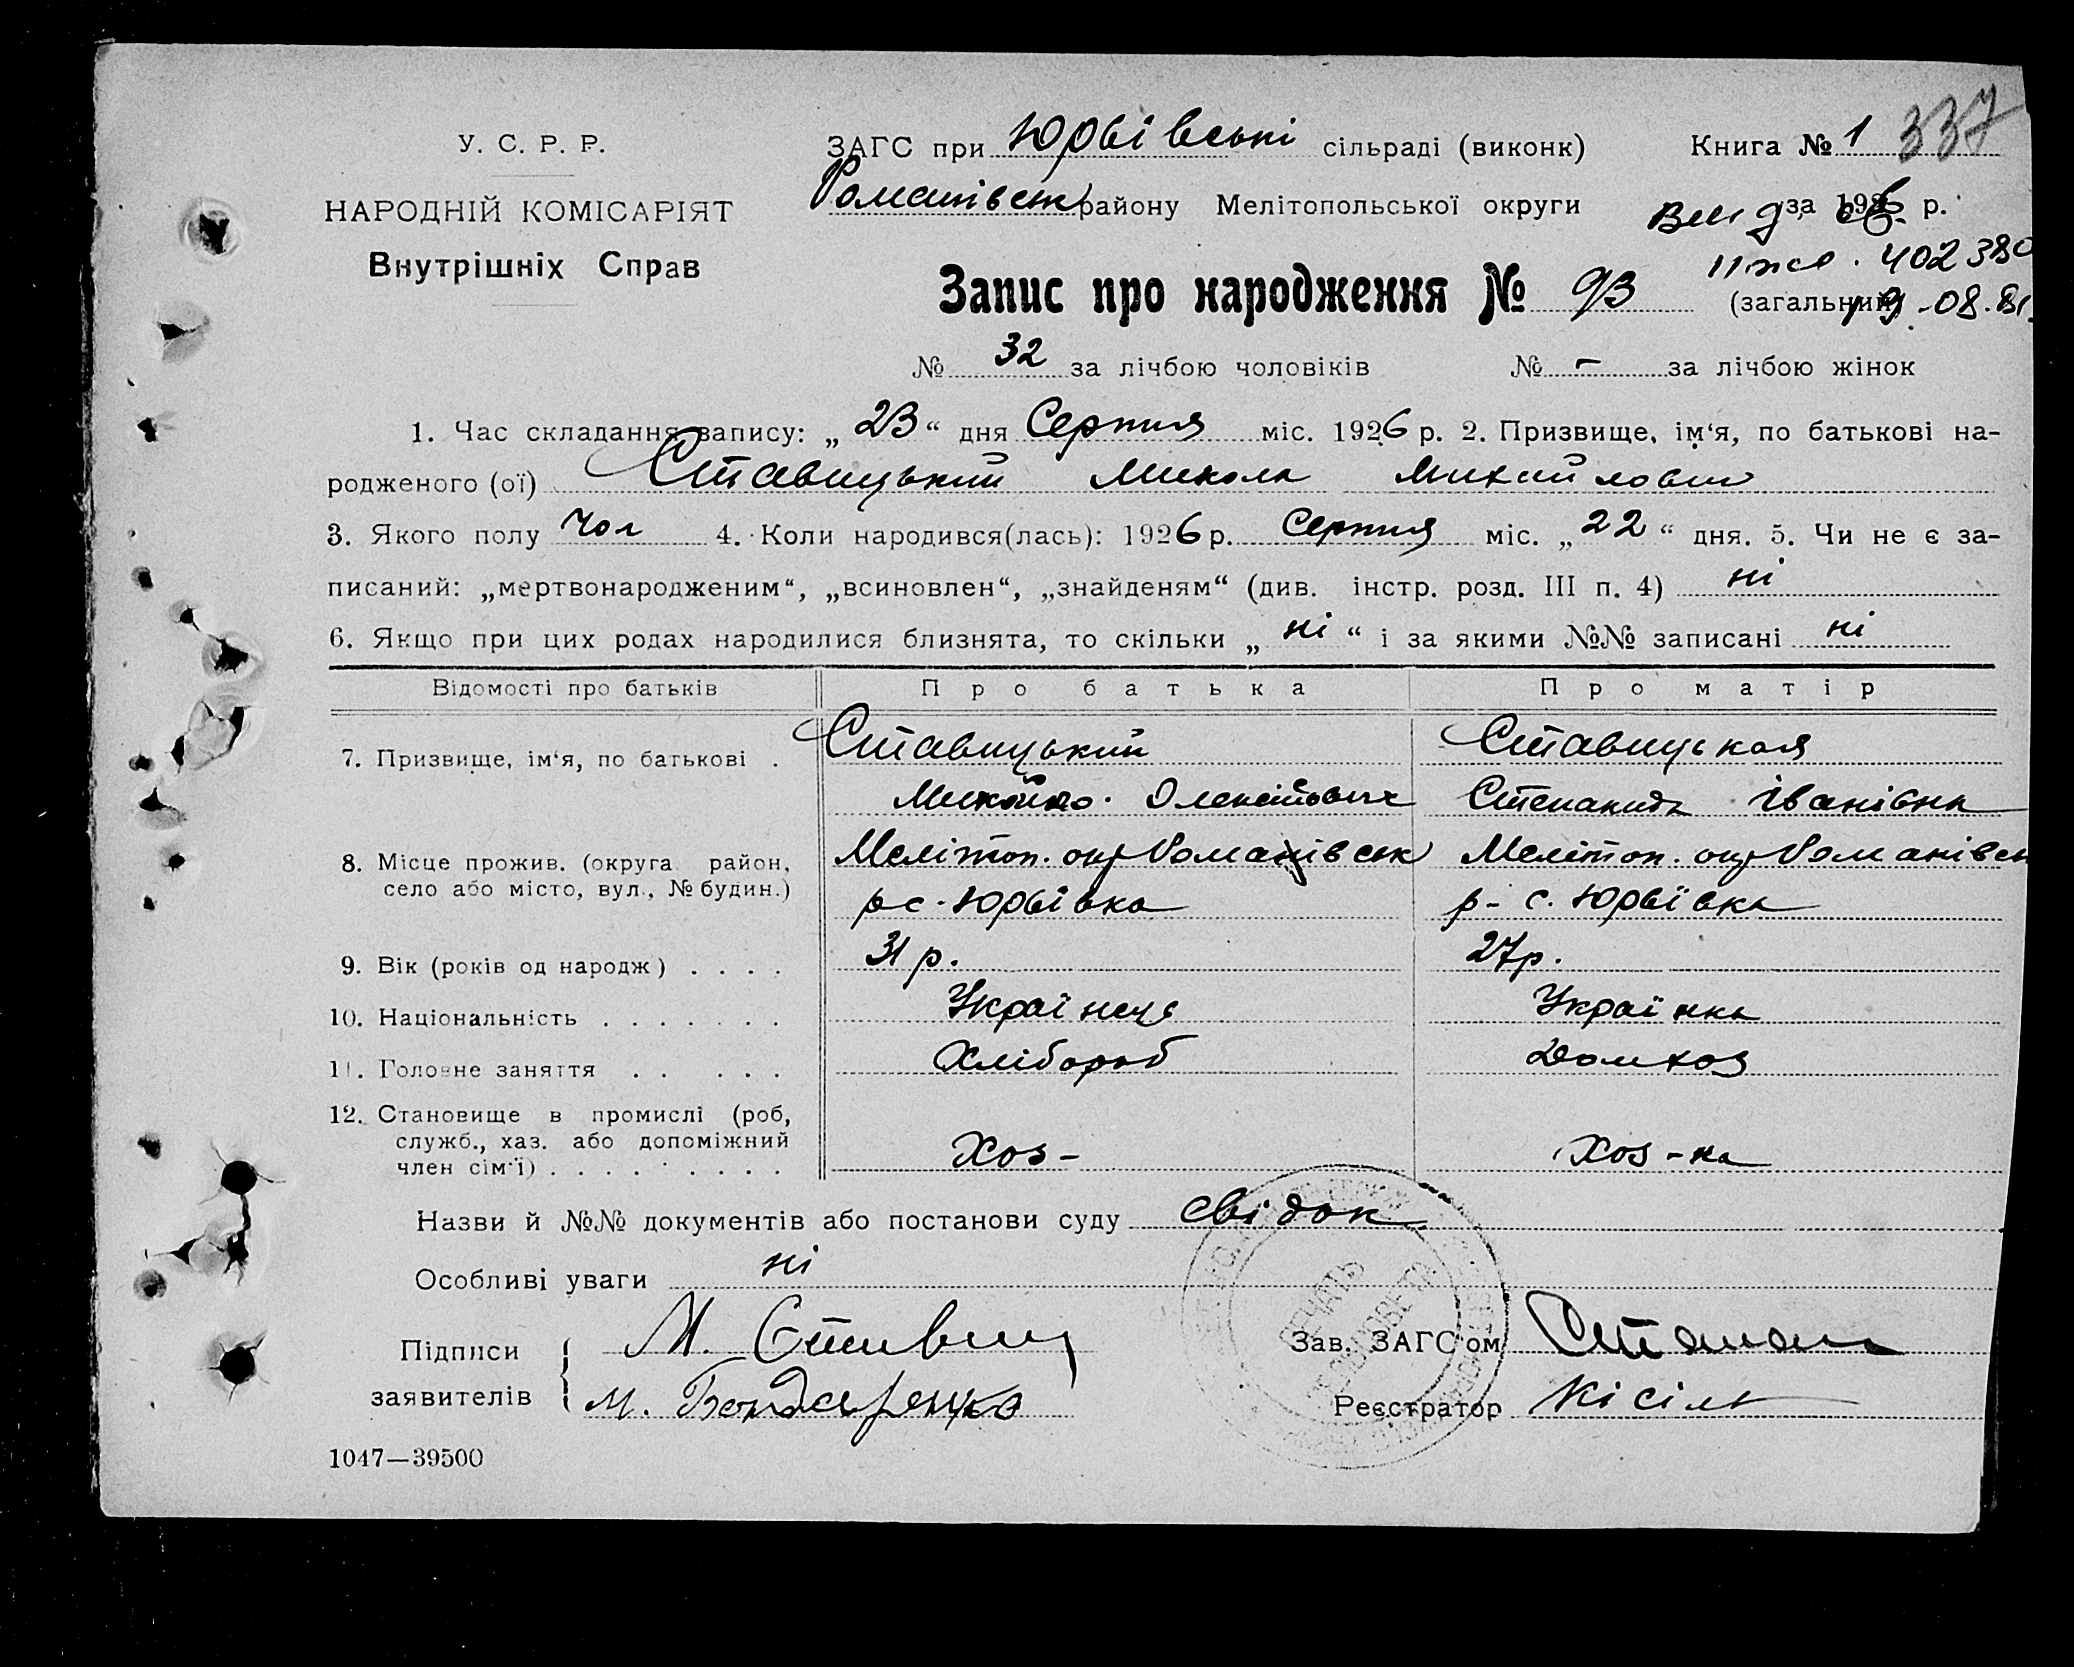 337
У. С. Р. Р.
ЗАГС при Юрьівські сільраді (виконк) Книга № 1
НАРОДНІЙ КОМІСАРІЯТ
Романівськ району Мелітопольської округи за 1926 р.
Внутрішніх Справ
402380
Запис про народження № 93 (загальний)
19.08.81
№ 32 за лічбою чоловіків № - за лічбою жінок
1. Час складання запису: „ 23 “ дня Серпня міс. 1926 р. 2. Призвище, ім‘я, по батькові на-
родженого (ої) Ставицький Микола Михайлович
3. Якого полу Чол 4. Коли народився(лась): 1926 р. Серпня міс. „ 22 “ дня. 5. Чи не є за-
писаний: „мертвонародженим“, „всиновлен“, „знайденям“ (див. інстр. розд. III п. 4) ні
6. Якщо при цих родах народилися близнята, то скільки „ ні “ і за якими №№ записані ні
Відомості про батьків Про батька Про матір
7. Призвище, ім‘я, по батькові . Ставицький Ставицькая
Олексійович Степанида Іванівна
8. Місце прожив. (округа район, Мелітоп. окр Романівськ Мелітоп. окр Романівськ
село або місто, вул., № будин.) р с. Юрьівка р- с. Юрьївка
9. Вік (років од народж) . . . . 31 р. 27 р.
10. Національність . . . . . . . Українець Українка
11. Головне заняття . . . . . Хлібороб Домхоз
12. Становище в промислі (роб,
служб., хаз. або допоміжний
член сім‘ї) . . . . . . . . . Хоз- Хоз-ка
Назви й №№ документів або постанови суду свідок
Особливі уваги ні
Підписи М. Ставиц Зав. ЗАГС‘ом
заявителів М. Бондаренко Реєстратор Кісіль
ПЕЧАТЬ
1047—39500